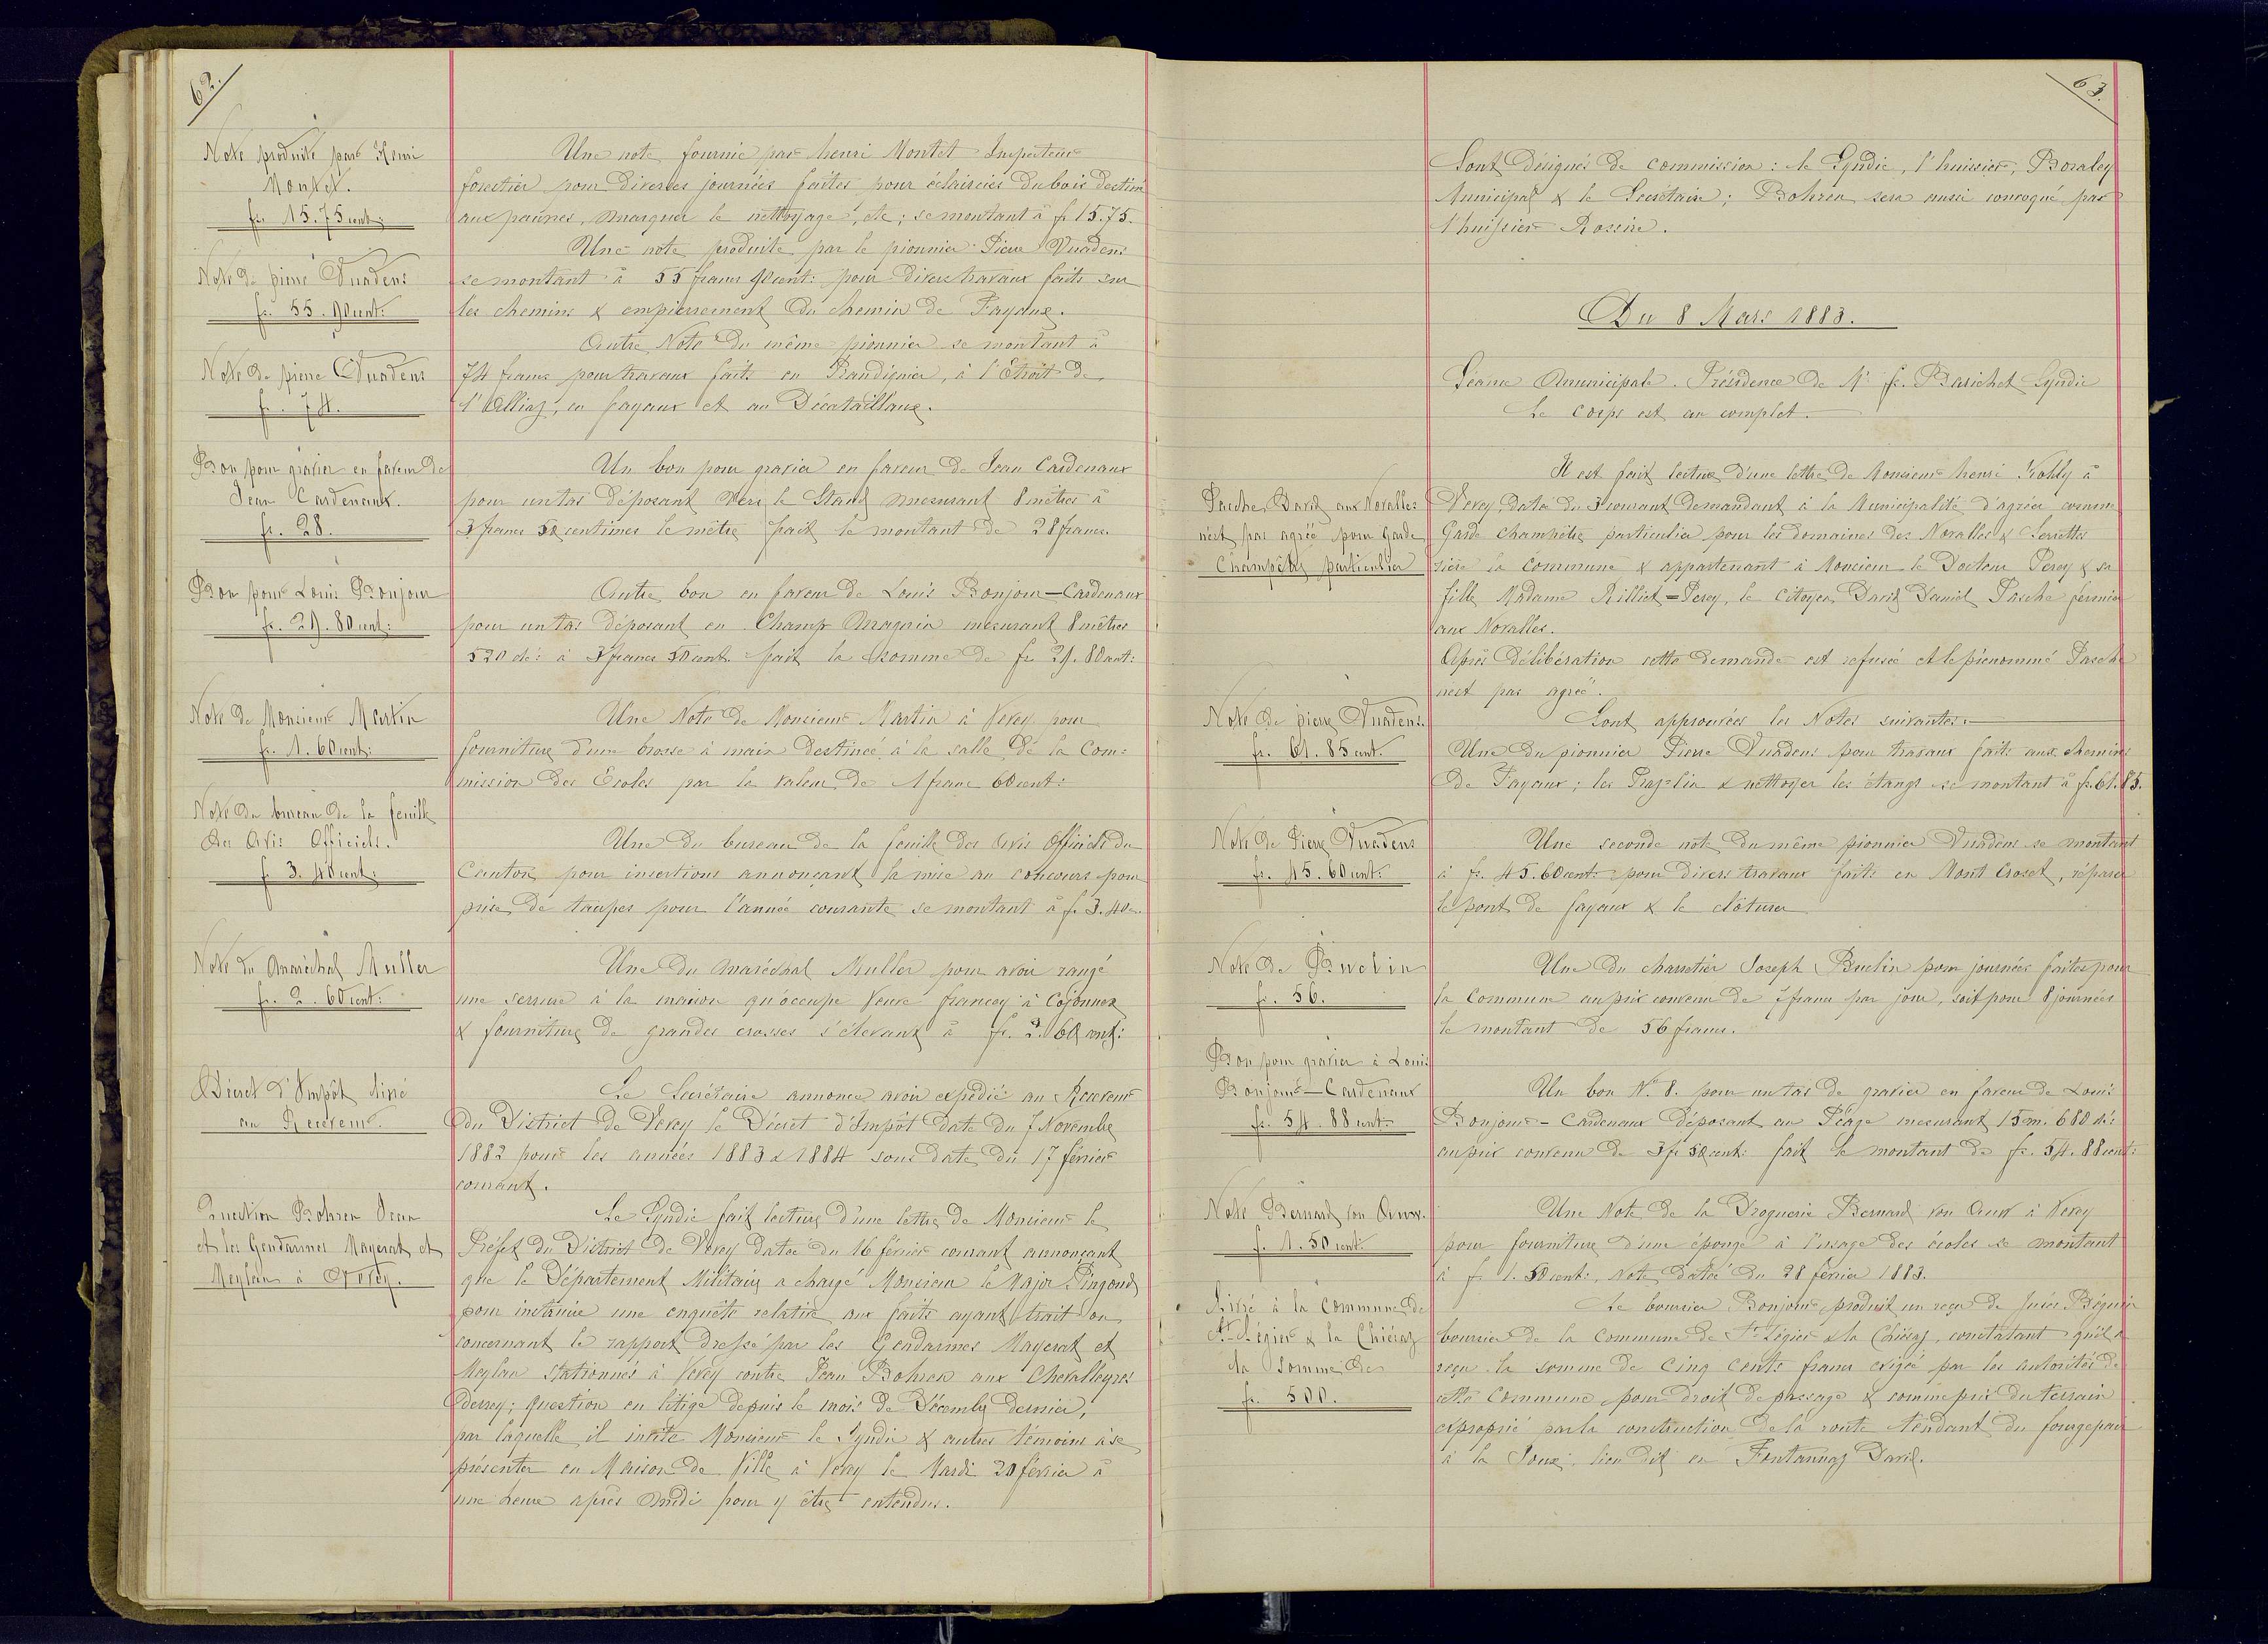 62.
Note produite par Henri
Montet.
fr. 15.75 cent:
Une note fournie par henri Montet Inspecteur
forestier pour diverses journées faites pour éclaircies du bois destiné
aux pauvres, marquer le nettoyage, etc; se montant à fr 15.75.
Note de pierre Vuadens
fr. 55.90 cent:
Une note produite par le pionnier Pierre Vuadens
se montant à 55 francs 90 cent: pour divers travaux faits sur
les chemins & empierrement du chemin de Fayaux.
Note de pierre Vuadens
fr. 74.
Autre Note du même pionnier se montant à
74 francs pour travaux faits en Baudignier, à l'Etroit de
l'Alliaz, en fayaux et au Décotaillaux.
Bon pour gravier en faveur de
Jean Cardenaux.
fr. 28.
Un bon pour gravier en faveur de Jean Cardenaux
pour un tas déposant vers le Stand mesurant 8 mètres à
3 francs 50 centimes le mètre fait le montant de 28 francs.
Bon pour Louis Bonjour
fr. 29.80 cent:
Autre bon en faveur de Louis Bonjour-Cardenaux
pour un tas déposant en Champ Magnin mesurant 8 mètres
520 dé: à 3 francs 50 cent. fait la somme de fr 29.80 cent:
Note de Monsieur Martin
fr. 1.60 cent:
Une Note de Monsieur Martin à Vevey pour
fourniture d'une brosse à main destinée à la salle de la Com=
mission des Ecoles par la valeur de 1 franc 60 cent:
Note du bureau de la feuille
des Avis Officiels.
f 3.40 cent:
Une du bureau de la feuille des Avis Officiels du
Canton pour insertions annonçant la mise au concours pour
prise de taupes pour l'année courante se montant à f. 3.40 c.
Note du Maréchal Muller
fr. 2.60 cent:
Une du Maréchal Muller pour avoir rangé
une serrure à la maison qu'occupe Veuve francey à Cojonnex
& fourniture de grandes crosses s'élevant à fr. 2.60 cent:
Décret d'Impôt livré
au Receveur.
Le Secrétaire annonce avoir expédié au Receveur
du District de Vevey le Décret d'Impôt daté du 7 Novembre
1882 pour les années 1883 & 1884 sous date du 17 février
courant.
Question Bohren Jean
et les Gendarmes Mayerat et
Meylan à Vevey.
Le Syndic fait lecture d'une lettre de Monsieur le
Préfet du District de Vevey datée du 16 février courant annonçant
que le Département Militaire a chargé Monsieur le Major Pingoud
pour instruire une enquête relative aux faits ayant trait ou
concernant le rapport dressé par les Gendarmes Mayerat et
Meylan stationnés à Vevey contre Jean Bohren aux Chevalleyres
Derrey; question en litige depuis le mois de Décembre dernier,
par laquelle il invite Monsieur le Syndic & autres témoins à se
présenter en Maison de Ville à Vevey le Mardi 20 février à
une heure après midi pour y être entendus.
63.
Sont désignés de commission: le Syndic, l'huissier, Boraley
Municipal & le Secrétaire; Bohren sera aussi convoqué par
l'huissier Rossire.
Du 8 Mars 1883.
Séance Municipale. Présidence de Mr fr. Barichet Syndic
Le corps est au complet.
Pasche, David aux Novalles
n'est pas agréé pour Garde
Champêtre particulier
Il est fait lecture d'une lettre de Monsieur henri Kohly à
Vevey datée du 3 courant demandant à la Municipalité d'agréer comme
Garde champêtre particulier pour les domaines des Novalles &
rière la Commune & appartenant à Monsieur le Docteur Perey & sa
fille Madame Rilliet=Perey, le citoyen David Daniel Pasche fermier
aux Novalles.
Après délibération cette demande est refusée et le prénommé Pasche
n'est pas agréé.
Sont approuvées les Notes suivantes.
Note de pierre Vuadens.
fr. 61.85 cent.
Une du pionnier Pierre Vuadens pour travaux faits aux chemins
de Fayaux; les & nettoyer les étangs se montant à fr. 61.85.
Note de Pierre Vuadens
fr. 45.60 cent:
Une seconde note du même pionnier Vuadens se montant
à fr. 45.60 cent: pour divers travaux faits en Mont Croset, réparer
le pont de fayaux & le clôturer
Note de Buclin
fr. 56.
Une du charretier Joseph Buclin pour journées faites pour
la Commune au prix convenu de 7 francs par jour, soit pour 8 journées
le montant de 56 francs.
Bon pour gravier à Louis
Bonjour-Cardenaux
fr. 54.88 cent:
Un bon No. 8. pour un tas de gravier en faveur de Louis
Bonjour-Cardenaux déposant au Péage mesurant 15 m. 680 dé:
au prix convenu de 3 fr 50 cent: fait le montant de fr. 54.88 cent:
Note Bernard von Auw.
f. 1.50 cent:
Une Note de la Droguerie Bernard von Auw à Vevey
pour fourniture d'une éponge à l'usage des écoles se montant
à f. 1.50 cent:, Note datée du 28 février 1883.
Livré à la Commune de
St Légier & la Chiésaz
la somme de
fr. 500.
Le boursier Bonjour produit un reçu de Béguin
boursier de la Commune de St Légier & la Chiésaz, constatant qu'il a
reçu la somme de cinq cents francs exigée par les autorités de
cette Commune pour droit de passage & comme prix du terrain
exproprié par la construction de la route tendant du
à la Joux, lieu dit en Fontannaz David.